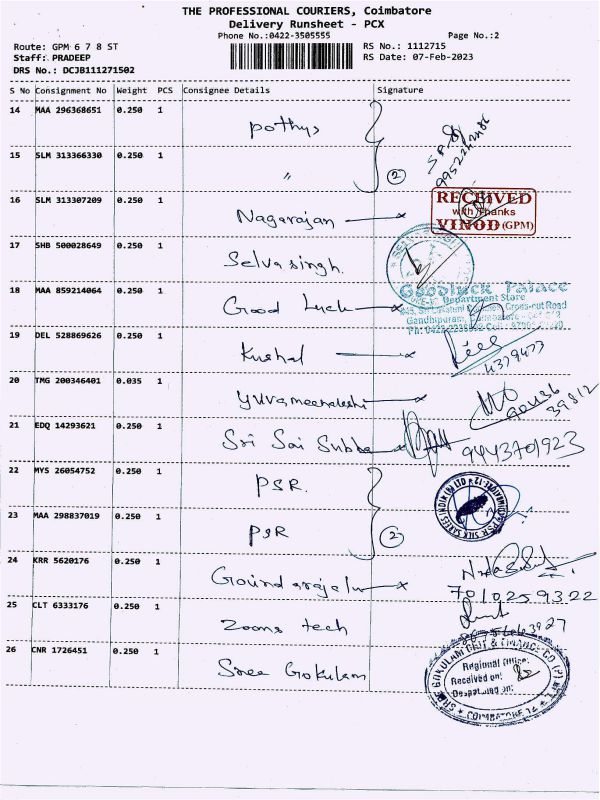 THE PROFESSIONAL COURIERS, Coimbatore
Delivery Runsheet - PCX
Phone No.:0422-3505555 Page No.:2
Route: GPM 6 7 8 ST RS No.: 1112715
Staff: PRADEEP RS Date: 07-Feb-2023
DRS No.: DCJB111271502
S No Consignment No Weight PCS Consignee Details Signature
14 MAA 296368651 0.250 1 Pothys 9952242486
15 SLM 313366330 0.250 1 〃 2
16 SLM 313307209 0.250 1 Nagarajan RECEIVED
with Thanks
VINOD (GPM)
17 SHB 500028649 0.250 1 Selvasingh.
18 MAA 859214064 0.250 1 Good Luck Goodluck Palace
Department Store
Cross-cut Road
Gandhipuram,
19 DEL 528869626 0.250 1 Kushal
20 TMG 200346401 0.035 1 Yuvameenakshi
21 EDQ 14293621 0.250 1 Sri Sai Subba 9443701923
22 MYS 26054752 0.250 1 PSR.
PSR SILK SAREES INDIA
23 MAA 298837019 0.250 1 PSR 2
24 KRR 5620176 0.250 1 Govindarajalu 7010259322
25 CLT 6333176 0.250 1 Zoons tech
26 CNR 1726451 0.250 1 Sree Gokulam SREE GOKULAM CHIT & FINANCE CO (P) LTD
Regional Office
Received on:
Despatched on:
COIMBATORE 12